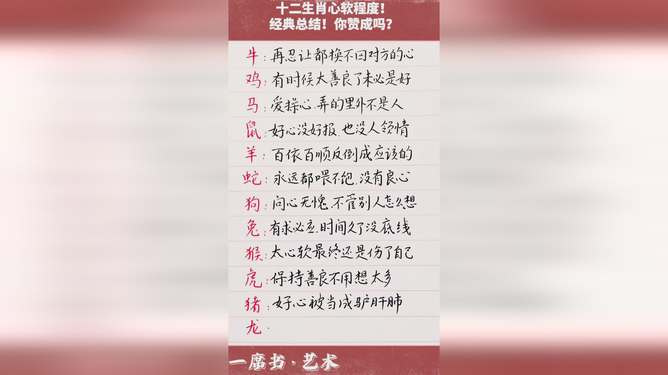 十二生肖心软程度！
经典总结！你赞成吗？
牛：再忍让都换不回对方的心
鸡：有时候太善良了未必是好
马：爱操心.弄的里外不是人
鼠：好心没好报.也没人领情
羊：百依百顺反倒成应该的
蛇：永远都喂不饱.没有良心
狗：问心无愧.不管别人怎么想
兔：有求必应.时间久了没底线
猴：太心软最终还是伤了自己
虎：保持善良不用想太多
猪：好心被当成驴肝肺
龙.
一席书·艺术